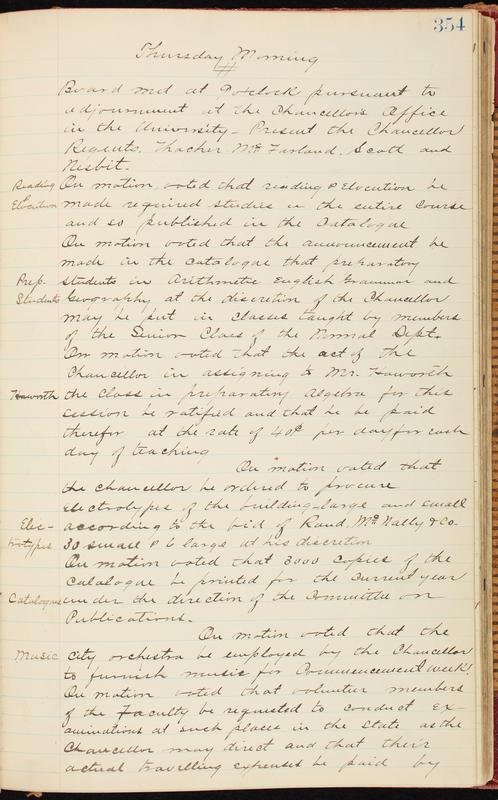 354
Thursday Morning
Board met at 9 o'clock pursuant to
adjournment at the Chancellor's Office
in the University - Present the Chancellor
Regents, Thacher McFarland, Scott and
Nesbit.
Reading & Elocution
On motion voted that reading & Elocution be
made required studies in the entire course
and so published in the Catalogue
On motion voted that the announcement be
made in the catalogue that preparatory
Prep. Students
students in Arithmetic English Grammar and
Geography at the discretion of the Chancellor
may be put in classes taught by members
of the Senior Class of the Normal Dept.
On motion voted that the act of the
Chancellor in assigning to Mr. Haworth
Haworth
the class in preparatory Algebra for this
session be ratified and that he be paid
therefor at the rate of 40¢ per day for each
day of teaching
On motion voted that
the Chancellor be ordered to procure
electrotypes of the building-large and small
Elec-
trotypes
according to the bid of Rand, McNally & Co.
30 small & 6 large at his discretion
On motion voted that 3000 copies of the
catalogue be printed for the current year
Catalogues
under the direction of the Committee on
Publications.
On motion voted that the
Music
city orchestra be employed by the Chancellor
to furnish music for Commencement week.
On motion voted that volunter members
of the Faculty be requested to conduct ex-
aminations at such places in the State as the
Chancellor may direct and that their
actual travelling expenses be paid by